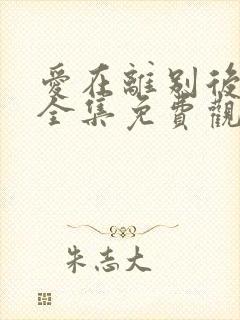 愛在離別後
全集免費觀
朱志大